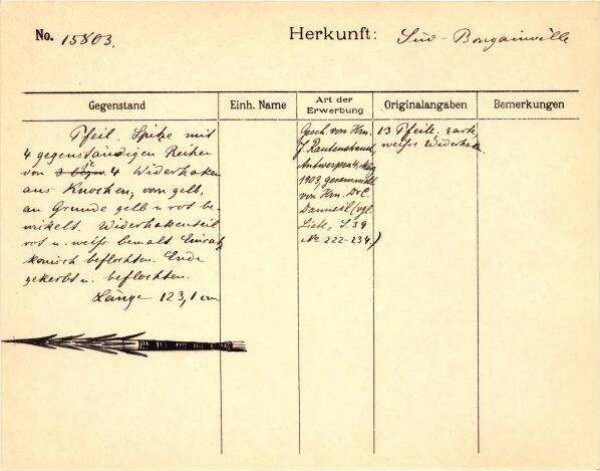 No. 15803.
Herkunft: Süd-Bougainville
Gegenstand
Einh. Name
Art der
Erwerbung
Originalangaben
Bemerkungen
Pfeil. Spitze mit
4 gegenständigen Reihen
von 4 Widerhaken
aus Knochen, vorn gelb,
am Grunde gelb u rot be-
wickelt. Widerhakenteil
rot u. weiß bemalt
konisch beflochten. Ende
gekerbt u. beflochten.
Länge 123,1 cm
Gesch. von Hrn.
J. Rautenstrauch,
Antwerpen, März
1903, gesammelt
von Hrn. Dr C.
Danneil (vgl.
Liste, S. 39
No 222-234)
13 Pfeile, rote,
weiße Widerhaken